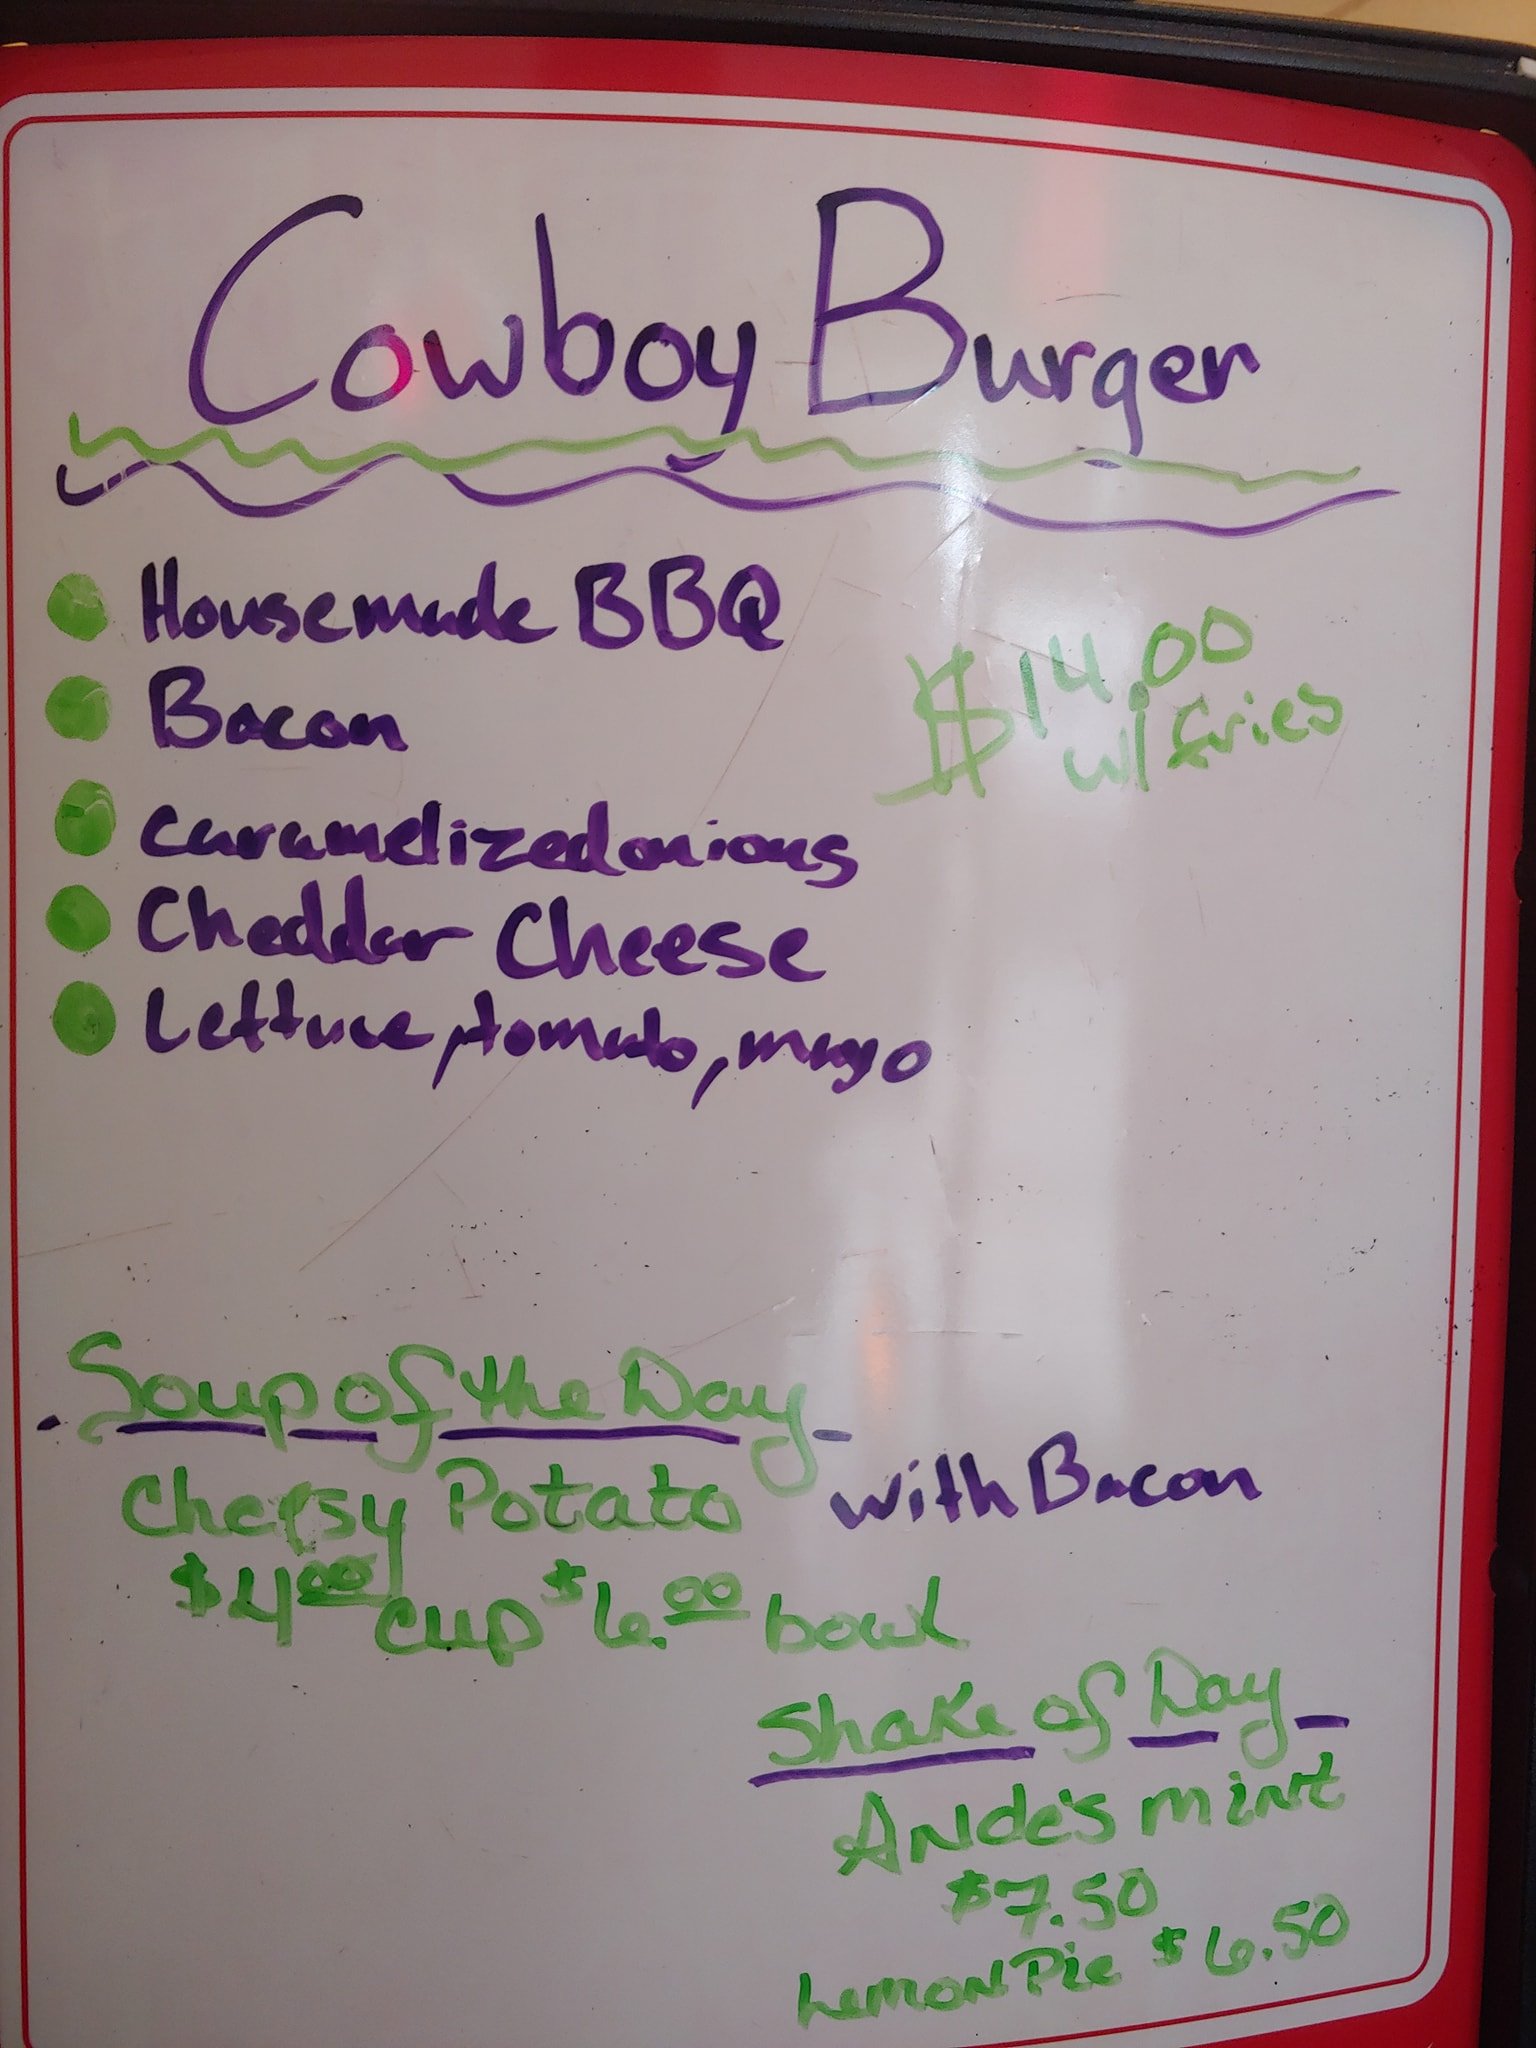 Cowboy Burger
Housemade BBQ
Bacon
$14.00
w/ fries
Caramelized onions
Cheddar Cheese
Lettuce, tomato, mayo
Soup of the Day
Cheesy Potato with Bacon
$4.00 cup $6.00 bowl
Shake of Day
Ande's mint
$7.50
Lemon Pie $6.50